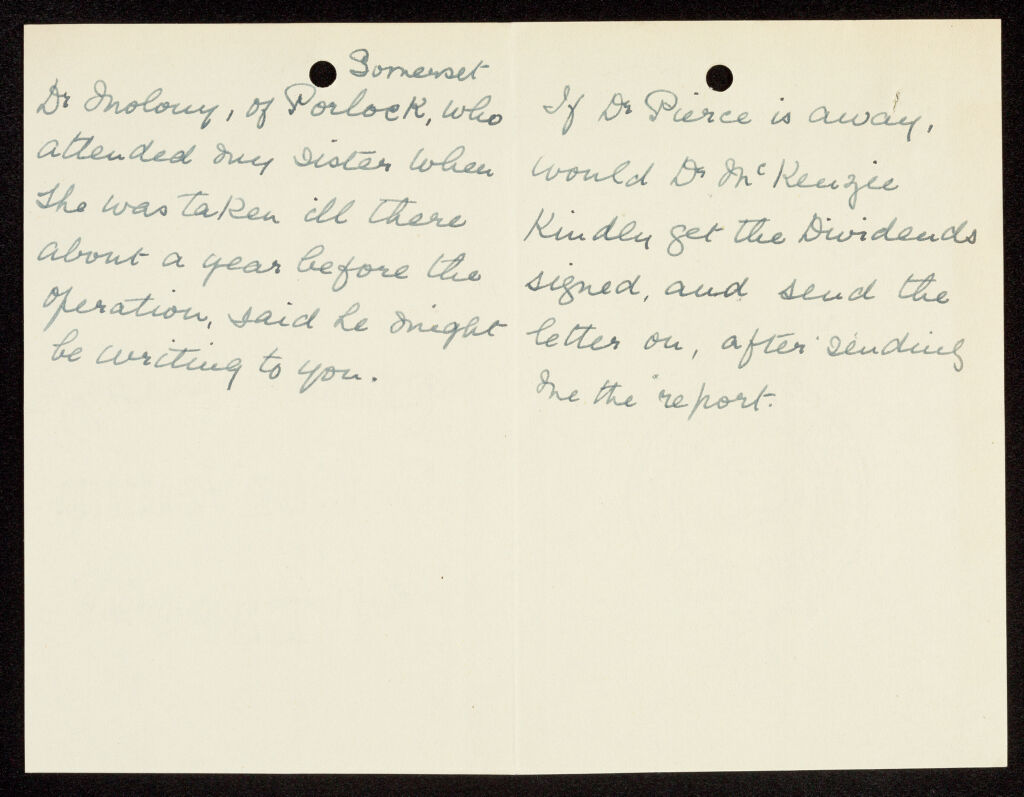 Somerset
Dr Molony, of Porlock, who
attended my sister when
she was taken ill there
about a year before the
operation, said he might
be writing to you.
If Dr Pierce is away,
would Dr McKenzie
Kindly get the Dividends
signed, and send the
letter on, after sending
me the report.